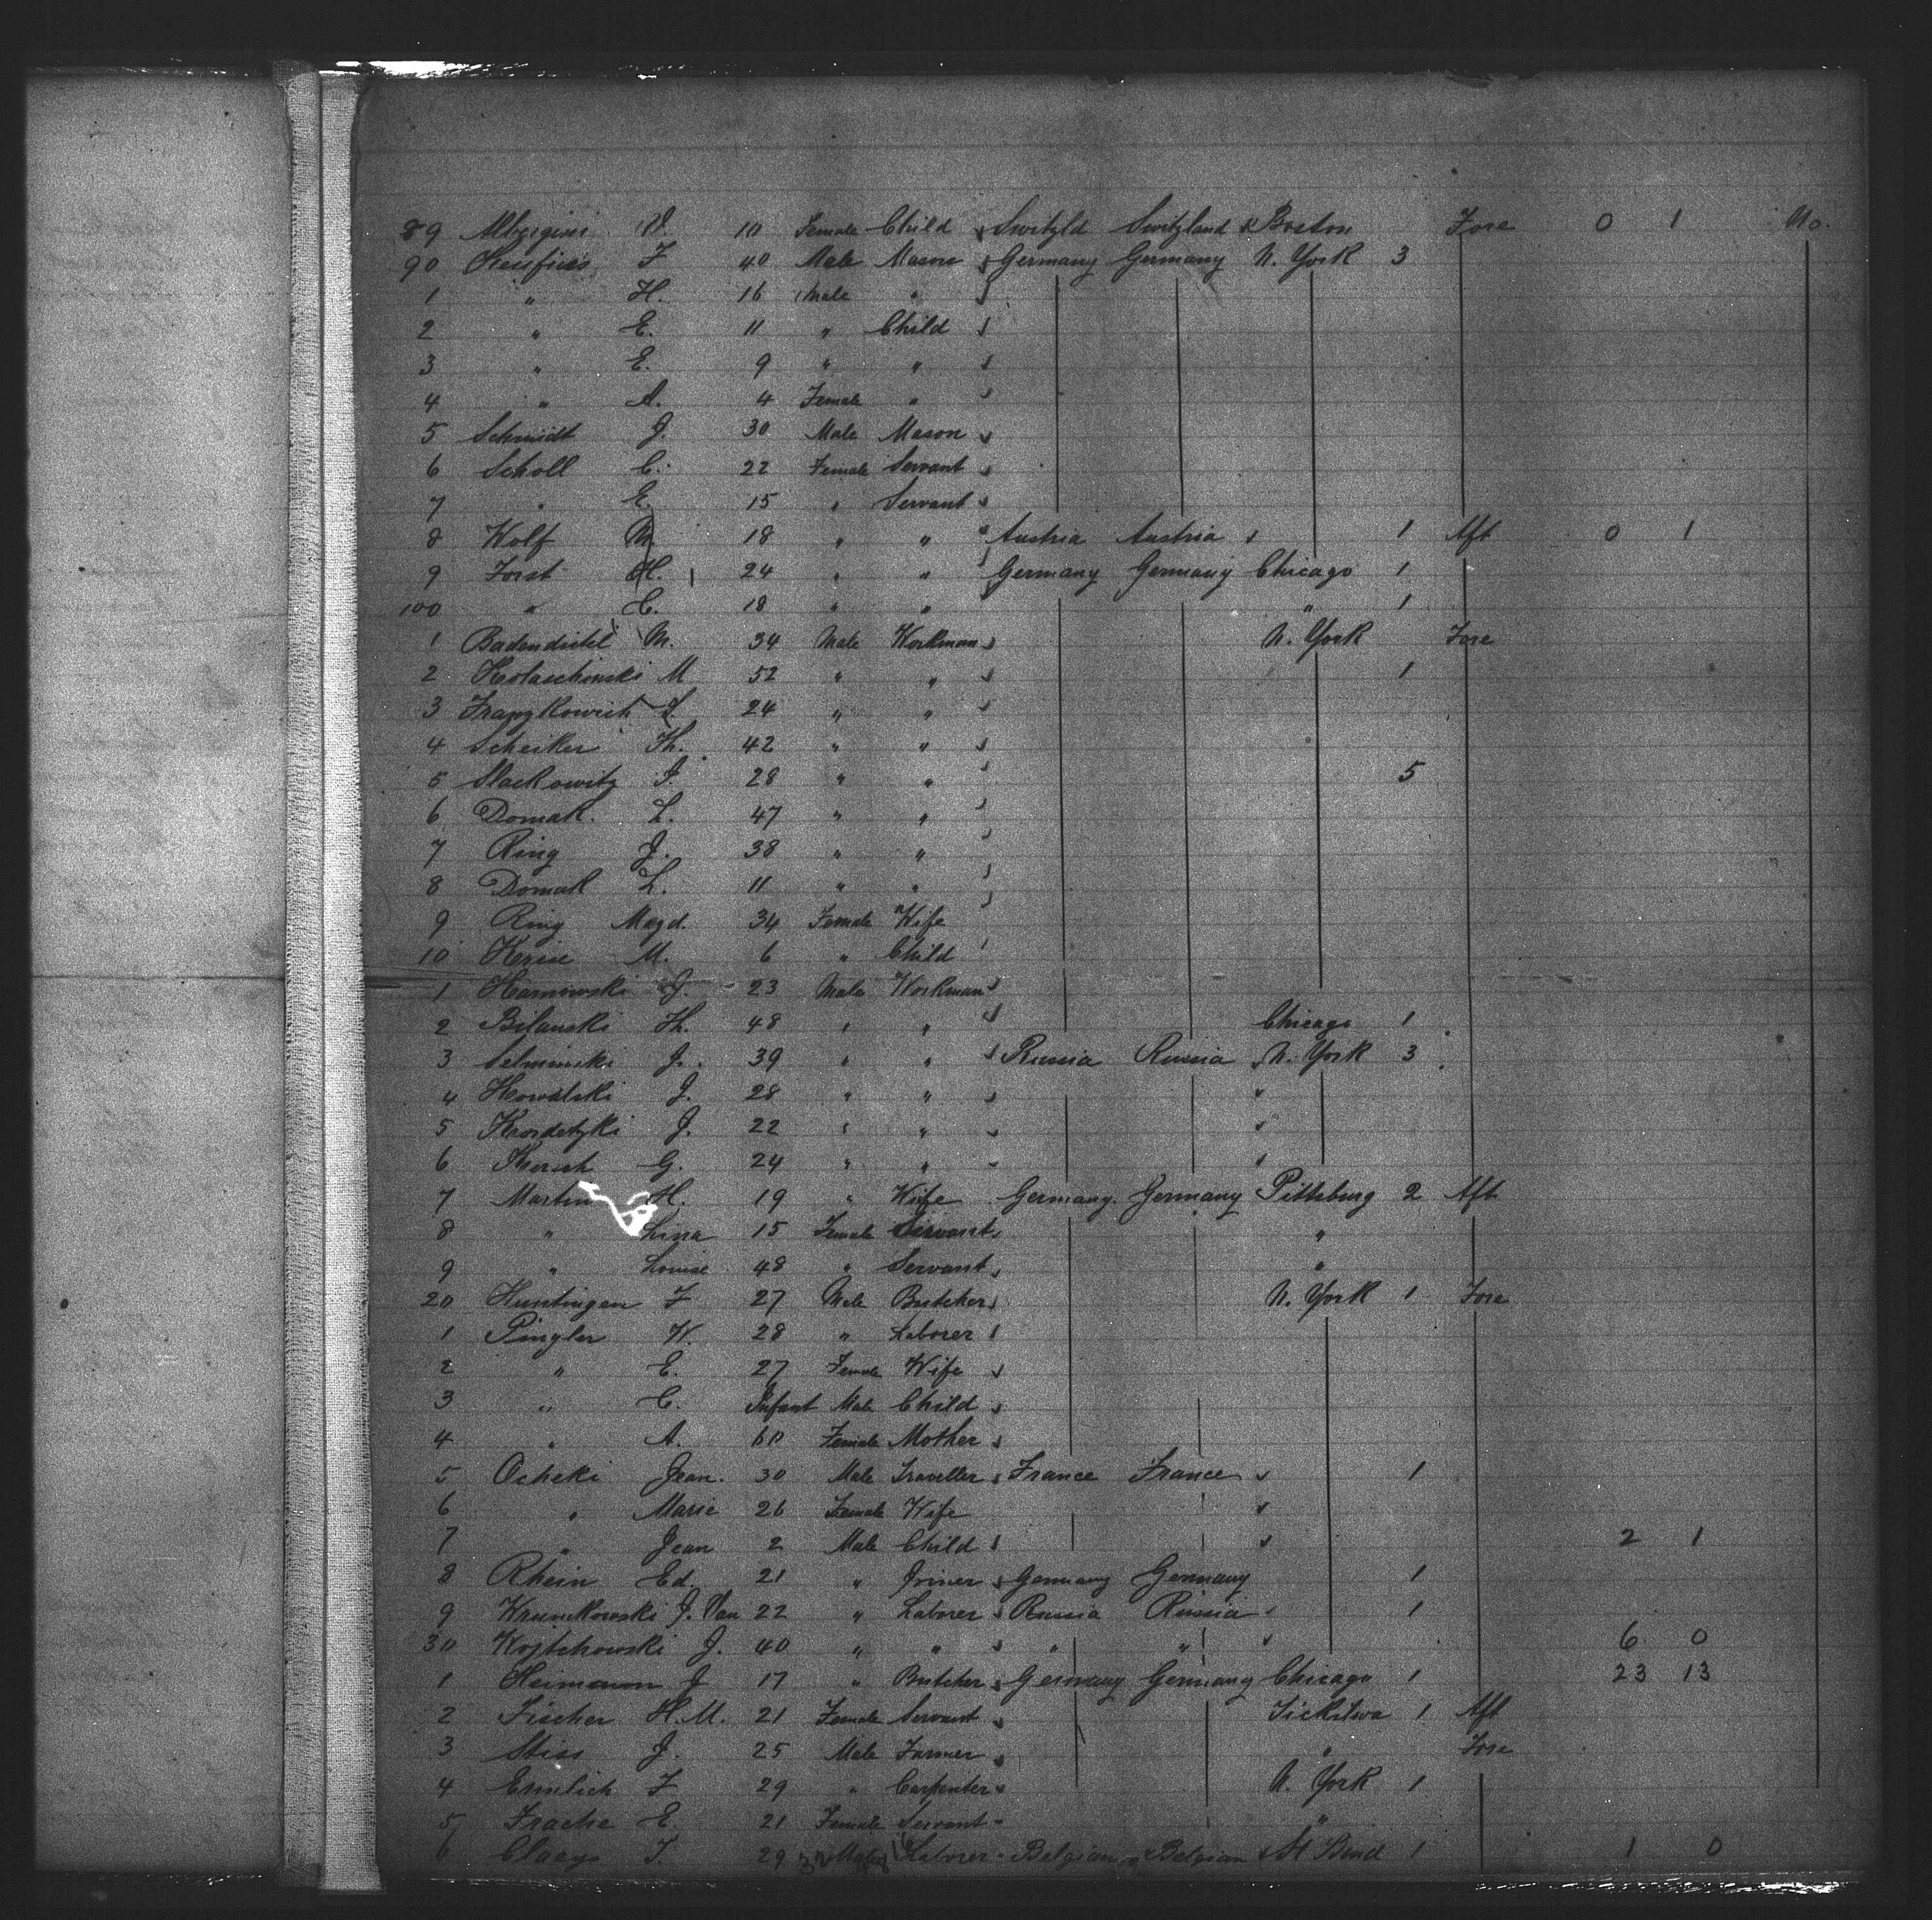 89 Albergini V. 10 Female Child Switzld Switzland Boston Fore 0 1 No.
90 F 40 Male Mason Germany Germany N. York 3
1 " H. 16 Male "
2 " E. 11 " Child
3 " E. 9 " "
4 " A. 4 Female "
5 Schmidt J. 30 Male Mason
6 Scholl C. 22 Female Servant
7 " E. 15 " Servant
8 Wolf M 18 " " Austria Austria 1 Aft 0 1
9 Forst H. 24 " " Germany Germany Chicago 1
100 " C. 18 " " " 1
1 Badendistel M. 34 Male Workman N. York Fore
2 Kolaschinski M 52 " " 1
3 Franzkowich L. 24 " "
4 Scheiker Th. 42 " "
5 Stackowitz J. 28 " " 5
6 Domak. L. 47 " "
7 Ring J. 38 " "
8 Domak L. 11 " "
9 Ring Magd. 34 Female Wife
10 M. 6 " Child
1 Harniwski J. 23 Male Workman
2 Bilanski Th. 48 " " Chicago 1
3 Selminski J. 39 " " Russia Russia N. York 3
4 Kowalski J. 28 " "
5 J. 22 " "
6 Kersch G. 24 " "
7 Martin H. 19 " Wife Germany. Germany Pittsburg 2 Aft
8 " Lina 15 Female Servant "
9 " Louise 48 " Servant "
20 Huntingen F 27 Male Butcher N. York 1 Fore
1 Pingler W. 28 " Laborer
2 " E. 27 Female Wife
3 " C. Infant Male Child
4 " A. 60 Female Mother
5 Ocheki Jean. 30 Male Traveller France France 1
6 " Marie 26 Female Wife
7 " Jean 2 Male Child 2 1
8 Rhein Ed 21 " Joiner Germany Germany 1
9 Krunkowski J. Van 22 " Laborer Russia Russia 1
30 Wojtchowski J. 40 " " " " 6 0
1 Heimann J 17 " Butcher Germany Germany Chicago 1 23 13
2 Fischer H.M. 21 Female Servant 1 Aft
3 Stiss J. 25 Male Farmer " Fore
4 Emlich F 29 " Carpenter N. York 1
5 Frache E. 21 Female Servant "
6 Claays T. 29 Male Laborer Belgian Belgian Bend 1 1 0